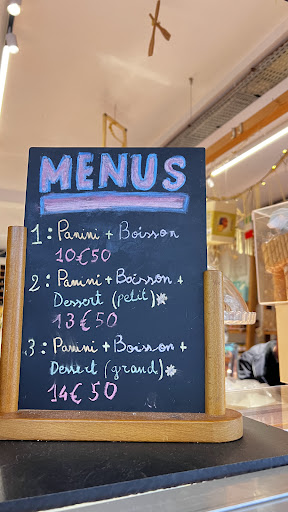 MENUS
1: Panini + Boisson
10€50
2: Panini + Boisson +
Dessert (petit)*
13€50
3: Panini + Boisson +
Dessert (grand)*
14€50